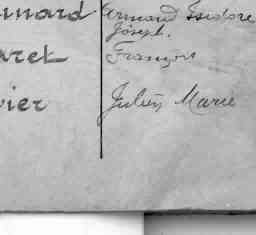 nnard Armand Isidore
Joseph.
aret François
vier Julien Marie